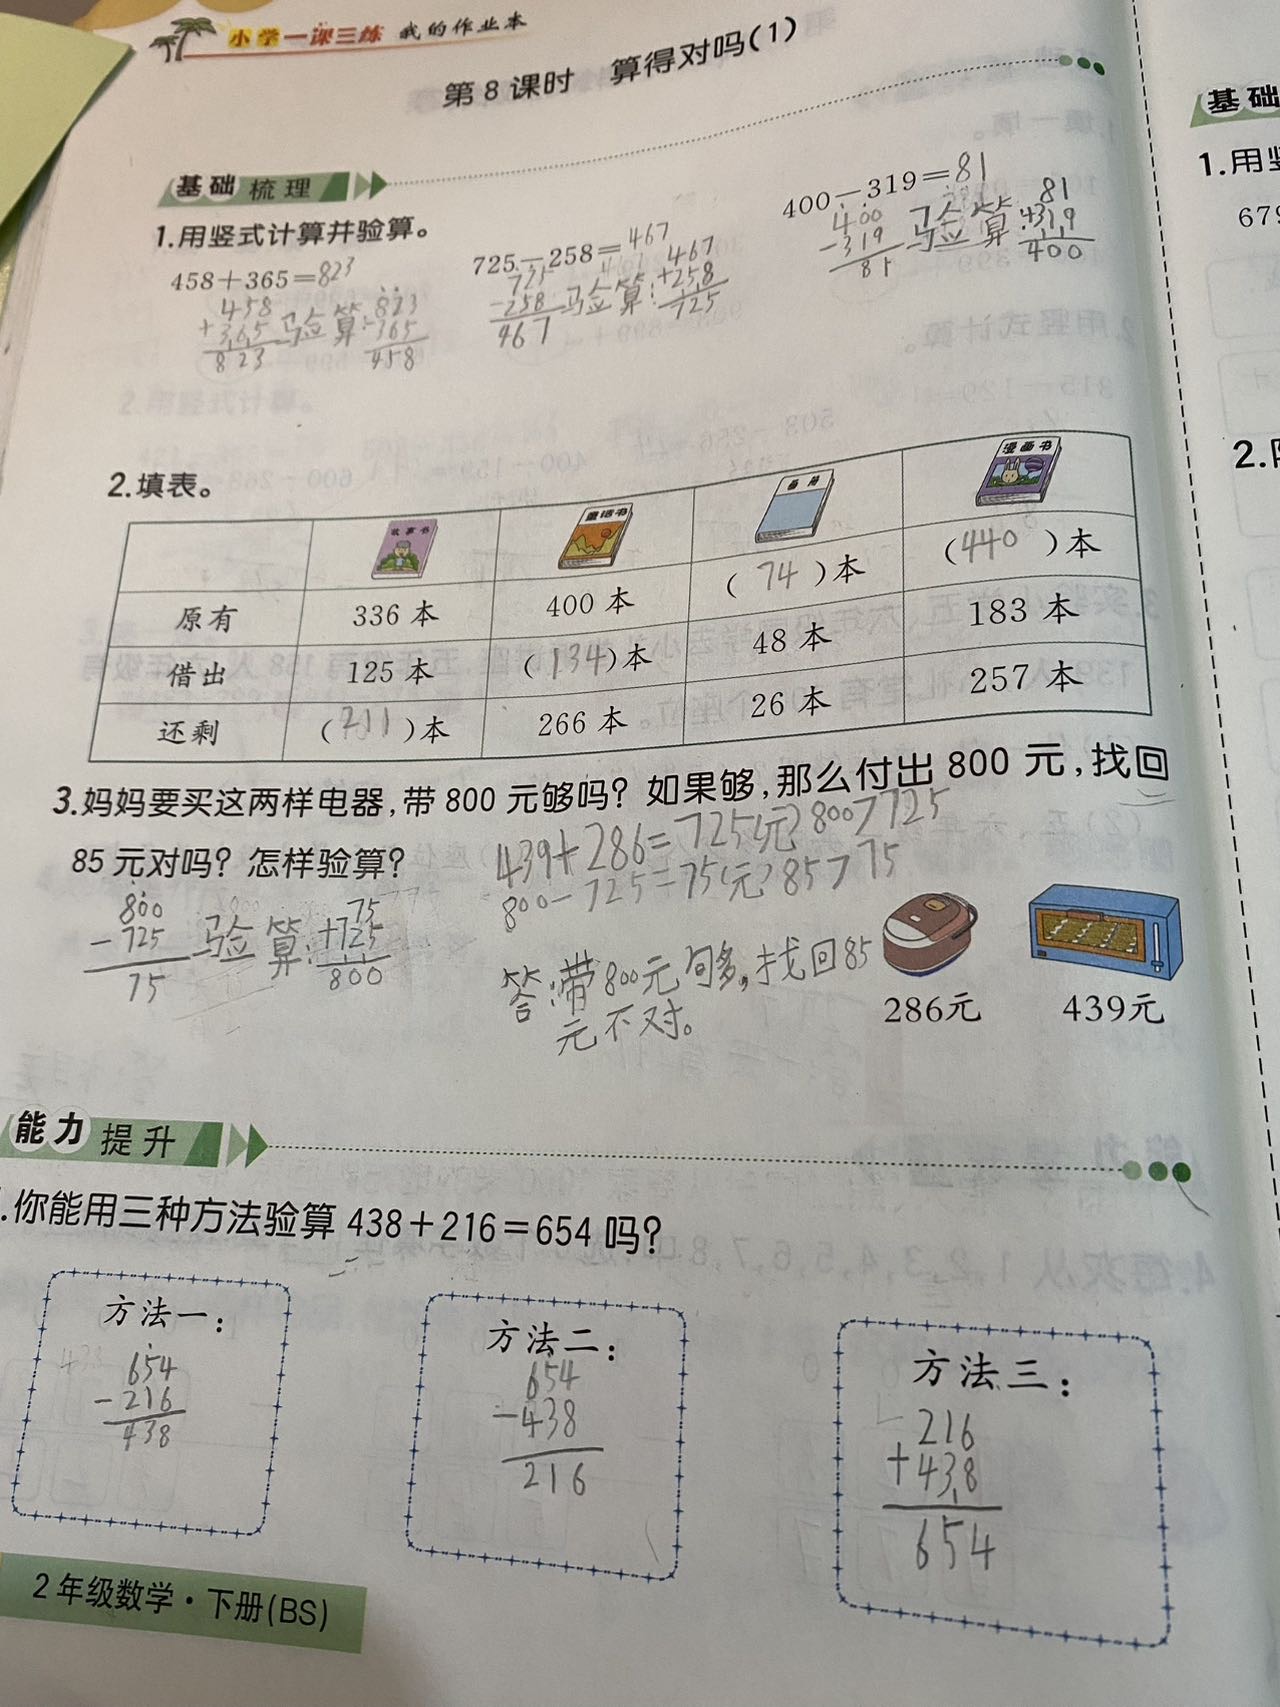 小学一课三练 我的作业本
第8课时 算得对吗(1)
基础梳理
1.用竖式计算并验算。
458+365=823
458
+365
823
验算:
823
-365
458
725-258=467
725
-258
467
验算:
467
+258
725
400-319=81
400
-319
81
验算:
81
+319
400
2.填表。
故事书 童话书 画册 漫画书
原有 336本 400本 (74)本 (440)本
借出 125本 (134)本 48本 183本
还剩 (211)本 266本 26本 257本
3.妈妈要买这两样电器,带800元够吗?如果够,那么付出800元,找回
85元对吗?怎样验算?
439+286=725(元)800>725
800-725=75(元)85>75
800
-725
75
验算:
75
+725
800
答:带800元够,找回85
元不对。
286元 439元
能力提升
.你能用三种方法验算438+216=654吗?
方法一:
654
-216
438
方法二:
654
-438
216
方法三:
216
+438
654
2年级数学·下册(BS)
基础
1.用竖
679
2.